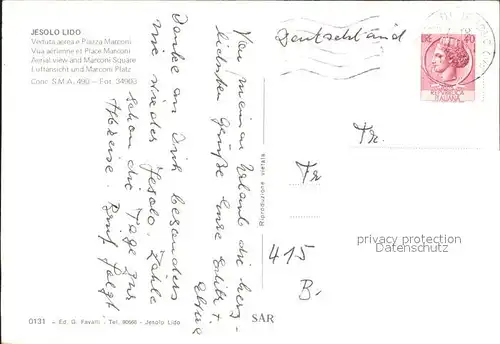 JESOLO LIDO
Veduta aerea e Piazza Marconi
Vue aérienne et Place Marconi
Aerial view and Marconi Square
Luftansicht und Marconi Platz
Conc. S.M.A. 490 - Fot. 34963
Von meinem Urlaub die herz-
lichsten Grüße
Denke an Dich besonders
wie wieder Jesolo. Zähle
schon die Tage zur
Abreise. Brief folgt
Deutschland
LIRE 40
REPUBBLICA
ITALIANA
Fr.
Fr
415
B.
privacy protection
Datenschutz
Riproduzione vietata
SAR
0131 - Ed. G. Favatti - Tel. 90566 - Jesolo Lido